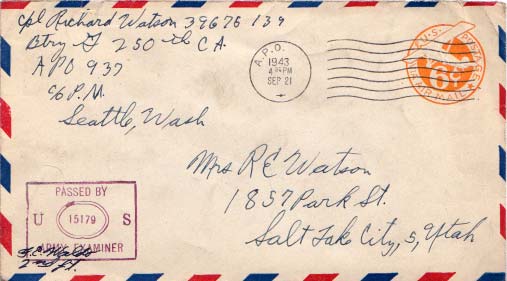 Cpl Richard Watson 39675139
Btry G 250th C.A.
A P O 937
c/o P.M.
Seattle, Wash
A.P.O.
1943
4 PM
SEP 21
U.S. POSTAGE
6¢
VIA AIR MAIL
Mrs R E Watson
1857 Park St.
Salt Lake City, 5, Utah
PASSED BY
U 15179 S
ARMY EXAMINER
2nd Lt.